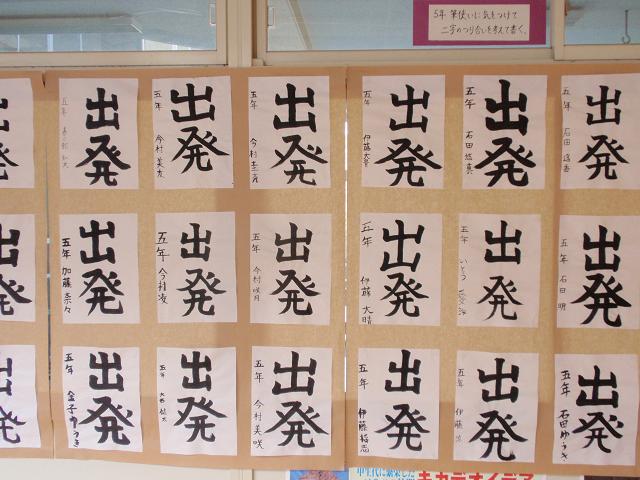 5年 筆使いに気をつけて
二字のつり合いを考えて書く。
出発
五年
出発
五年 今村美友
出発
五年
出発
五年 伊藤
出発
五年 石田悠真
出発
五年 石田
出発
五年 加藤奈々
出発
五年 今村凌
出発
五年 今村咲月
出発
五年 伊藤大晴
出発
五年 いとう
出発
五年 石田明
出発
五年 金子ゆうき
出発
五年
出発
五年 今村美咲
出発
五年 伊藤
出発
五年 伊藤
出発
五年 石田ゆうき